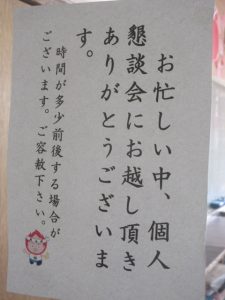 お忙しい中、個人
懇談会にお越し頂き
ありがとうございま
す。
時間が多少前後する場合が
ございます。ご容赦下さい。